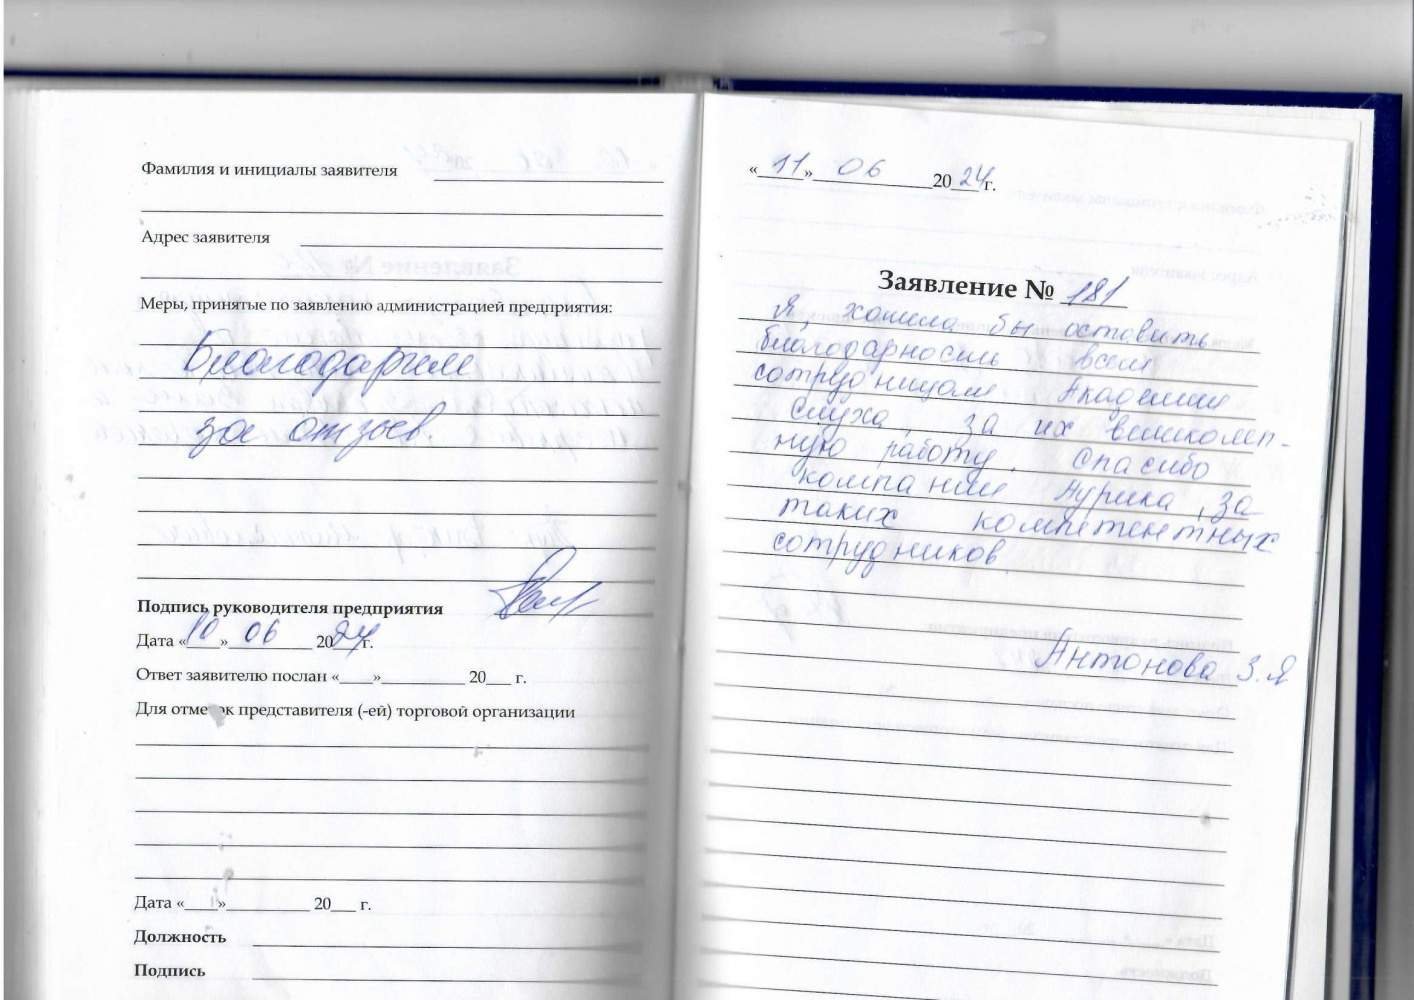 Фамилия и инициалы заявителя
Адрес заявителя
Меры, принятые по заявлению администрацией предприятия:
Благодарим
за отзыв.
Подпись руководителя предприятия
Дата «10» 06 2024г.
Ответ заявителю послан «___»_________ 20___ г.
Для отметок представителя (-ей) торговой организации
Дата «___»_________ 20___ г.
Должность
Подпись
«11» 06 2024 г.
Заявление № 181
Я, хотила бы оставить
благодарность всем
сотрудницам Академии
Слуха, за их великолеп-
ную работу. Спасибо
компании Аурика, за
таких компетентных
сотрудников.
Антонова З.Я